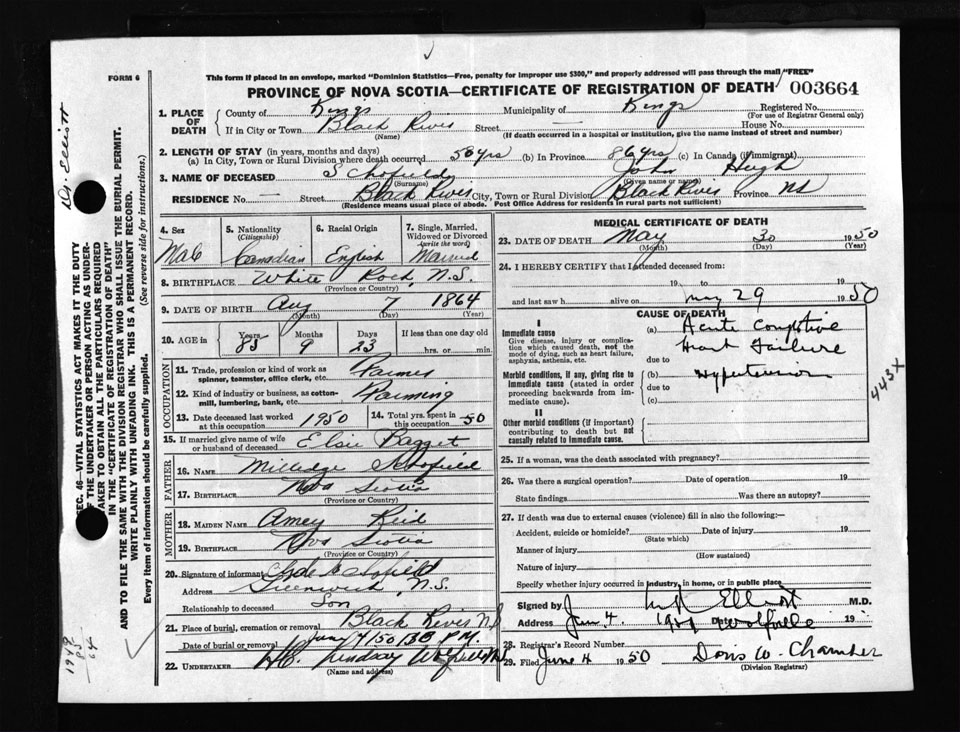 FORM 6
This form if placed in an envelope, marked "Dominion Statistics—Free, penalty for improper use $300," and properly addressed will pass through the mail "FREE"
PROVINCE OF NOVA SCOTIA—CERTIFICATE OF REGISTRATION OF DEATH 003664
1. PLACE OF DEATH
County of Kings Municipality of Kings Registered No.
(For use of Registrar General only)
If in City or Town Black River Street — House No.
(Name) (If death occurred in a hospital or institution, give the name instead of street and number)
2. LENGTH OF STAY (in years, months and days)
(a) In City, Town or Rural Division where death occurred 50 yrs (b) In Province 86 yrs (c) In Canada (if immigrant)
3. NAME OF DECEASED Schofield John Hugh
(Surname) (Given name or names)
RESIDENCE No. — Street Black River City, Town or Rural Division Black River Province NS
(Residence means usual place of abode. Post Office Address for residents in rural parts not sufficient)
4. Sex
Male
5. Nationality
(Citizenship)
Canadian
6. Racial Origin
English
7. Single, Married, Widowed or Divorced
(write the word)
Married
8. BIRTHPLACE White Rock, N.S.
(Province or Country)
9. DATE OF BIRTH Aug 7 1864
(Month) (Day) (Year)
10. AGE in
Years 85
Months 9
Days 23
If less than one day
hrs. or min.
OCCUPATION
11. Trade, profession or kind of work as spinner, teamster, office clerk, etc. Farmer
12. Kind of industry or business, as cotton-mill, lumbering, bank, etc. Farming
13. Date deceased last worked at this occupation 1950
14. Total yrs. spent in this occupation 50
15. If married give name of wife or husband of deceased Elsie Bagget
FATHER
16. NAME Milledge Schofield
17. BIRTHPLACE Nova Scotia
(Province or Country)
MOTHER
18. MAIDEN NAME Amey Reid
19. BIRTHPLACE Nova Scotia
(Province or Country)
20. Signature of informant
Address Greenwich, N.S.
Relationship to deceased Son
21. Place of burial, cremation or removal Black River NS
Date of burial or removal
22. UNDERTAKER H.C. Lindsay Wolfville NS
(Name and address)
MEDICAL CERTIFICATE OF DEATH
23. DATE OF DEATH May 30 1950
(Month) (Day) (Year)
24. I HEREBY CERTIFY that I attended deceased from:
19 to 19
and last saw h alive on May 29 1950
CAUSE OF DEATH
I
Immediate cause
Give disease, injury or complication which caused death, not the mode of dying, such as heart failure, asphyxia, asthenia, etc.
(a) Acute Congestive Heart Failure
due to
Morbid conditions, if any, giving rise to immediate cause (stated in order proceeding backwards from immediate cause).
(b) Hypertension
due to
(c)
II
Other morbid conditions (if important) contributing to death but not causally related to immediate cause.
443X
25. If a woman, was the death associated with pregnancy?
26. Was there a surgical operation? Date of operation 19
State findings Was there an autopsy?
27. If death was due to external causes (violence) fill in also the following:—
Accident, suicide or homicide? Date of injury 19
(State which)
Manner of injury
(How sustained)
Nature of injury
Specify whether injury occurred in industry, in home, or in public place
Signed by Elliott M.D.
Address June 4 Wolfville 19
28. Registrar's Record Number
29. Filed June 4 1950 Doris W. Chamber
(Division Registrar)
Dr. Elliott
SEC. 46—VITAL STATISTICS ACT MAKES IT THE DUTY OF THE UNDERTAKER OR PERSON ACTING AS UNDERTAKER TO OBTAIN ALL THE PARTICULARS REQUIRED IN THE "CERTIFICATE OF REGISTRATION OF DEATH" AND TO FILE THE SAME WITH THE DIVISION REGISTRAR WHO SHALL ISSUE THE BURIAL PERMIT.
WRITE PLAINLY WITH UNFADING INK. THIS IS A PERMANENT RECORD.
Every item of information should be carefully supplied. (See reverse side for instructions.)
1949
85
64